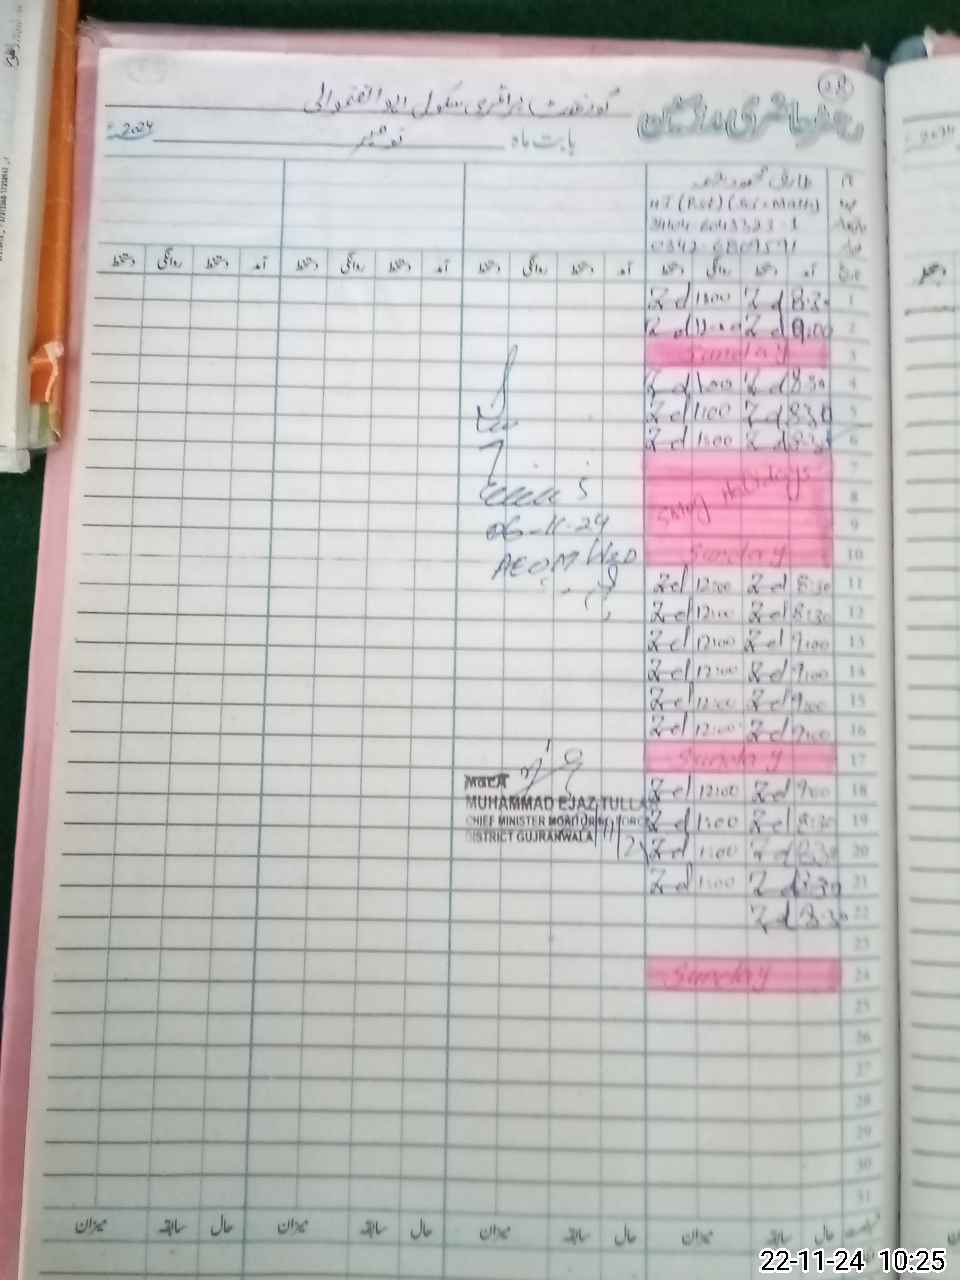 رجسٹر حاضری مدرسین
گورنمنٹ پرائمری سکول
بابت ماہ نومبر 2024ء
طارق محمود
(Sci-Math)
آمد دستخط روانگی دستخط آمد دستخط روانگی دستخط آمد دستخط روانگی دستخط آمد دستخط روانگی دستخط
1 8:30 Zd 1300 Zd
2 9:00 Zd Zd
3 Sunday
4 8:30 Zd 1300 Zd
5 8:30 Zd 1300 Zd
6 8:30 Zd 1300 Zd
7
8 Smog Holidays
9
10 Sunday
06-11-24
11 8:30 Zd 12:00 Zd
12 8:30 Zd 12:00 Zd
13 9:00 Zd 12:00 Zd
14 9:00 Zd 12:00 Zd
15 9:00 Zd 12:00 Zd
16 9:00 Zd 12:00 Zd
17 Sunday
18 9:00 Zd 12:00 Zd
MUHAMMAD EJAZ TULLA
19 8:30 Zd 1300 Zd
CHIEF MINISTER MONITORING FORCE
DISTRICT GUJRANWALA
20 8:30 Zd 1300 Zd
21 8:30 Zd 1300 Zd
22 8:30 Zd
23
24 Sunday
25
26
27
28
29
30
31
حال سابقہ میزان حال سابقہ میزان حال سابقہ میزان حال سابقہ میزان
22-11-24 10:25